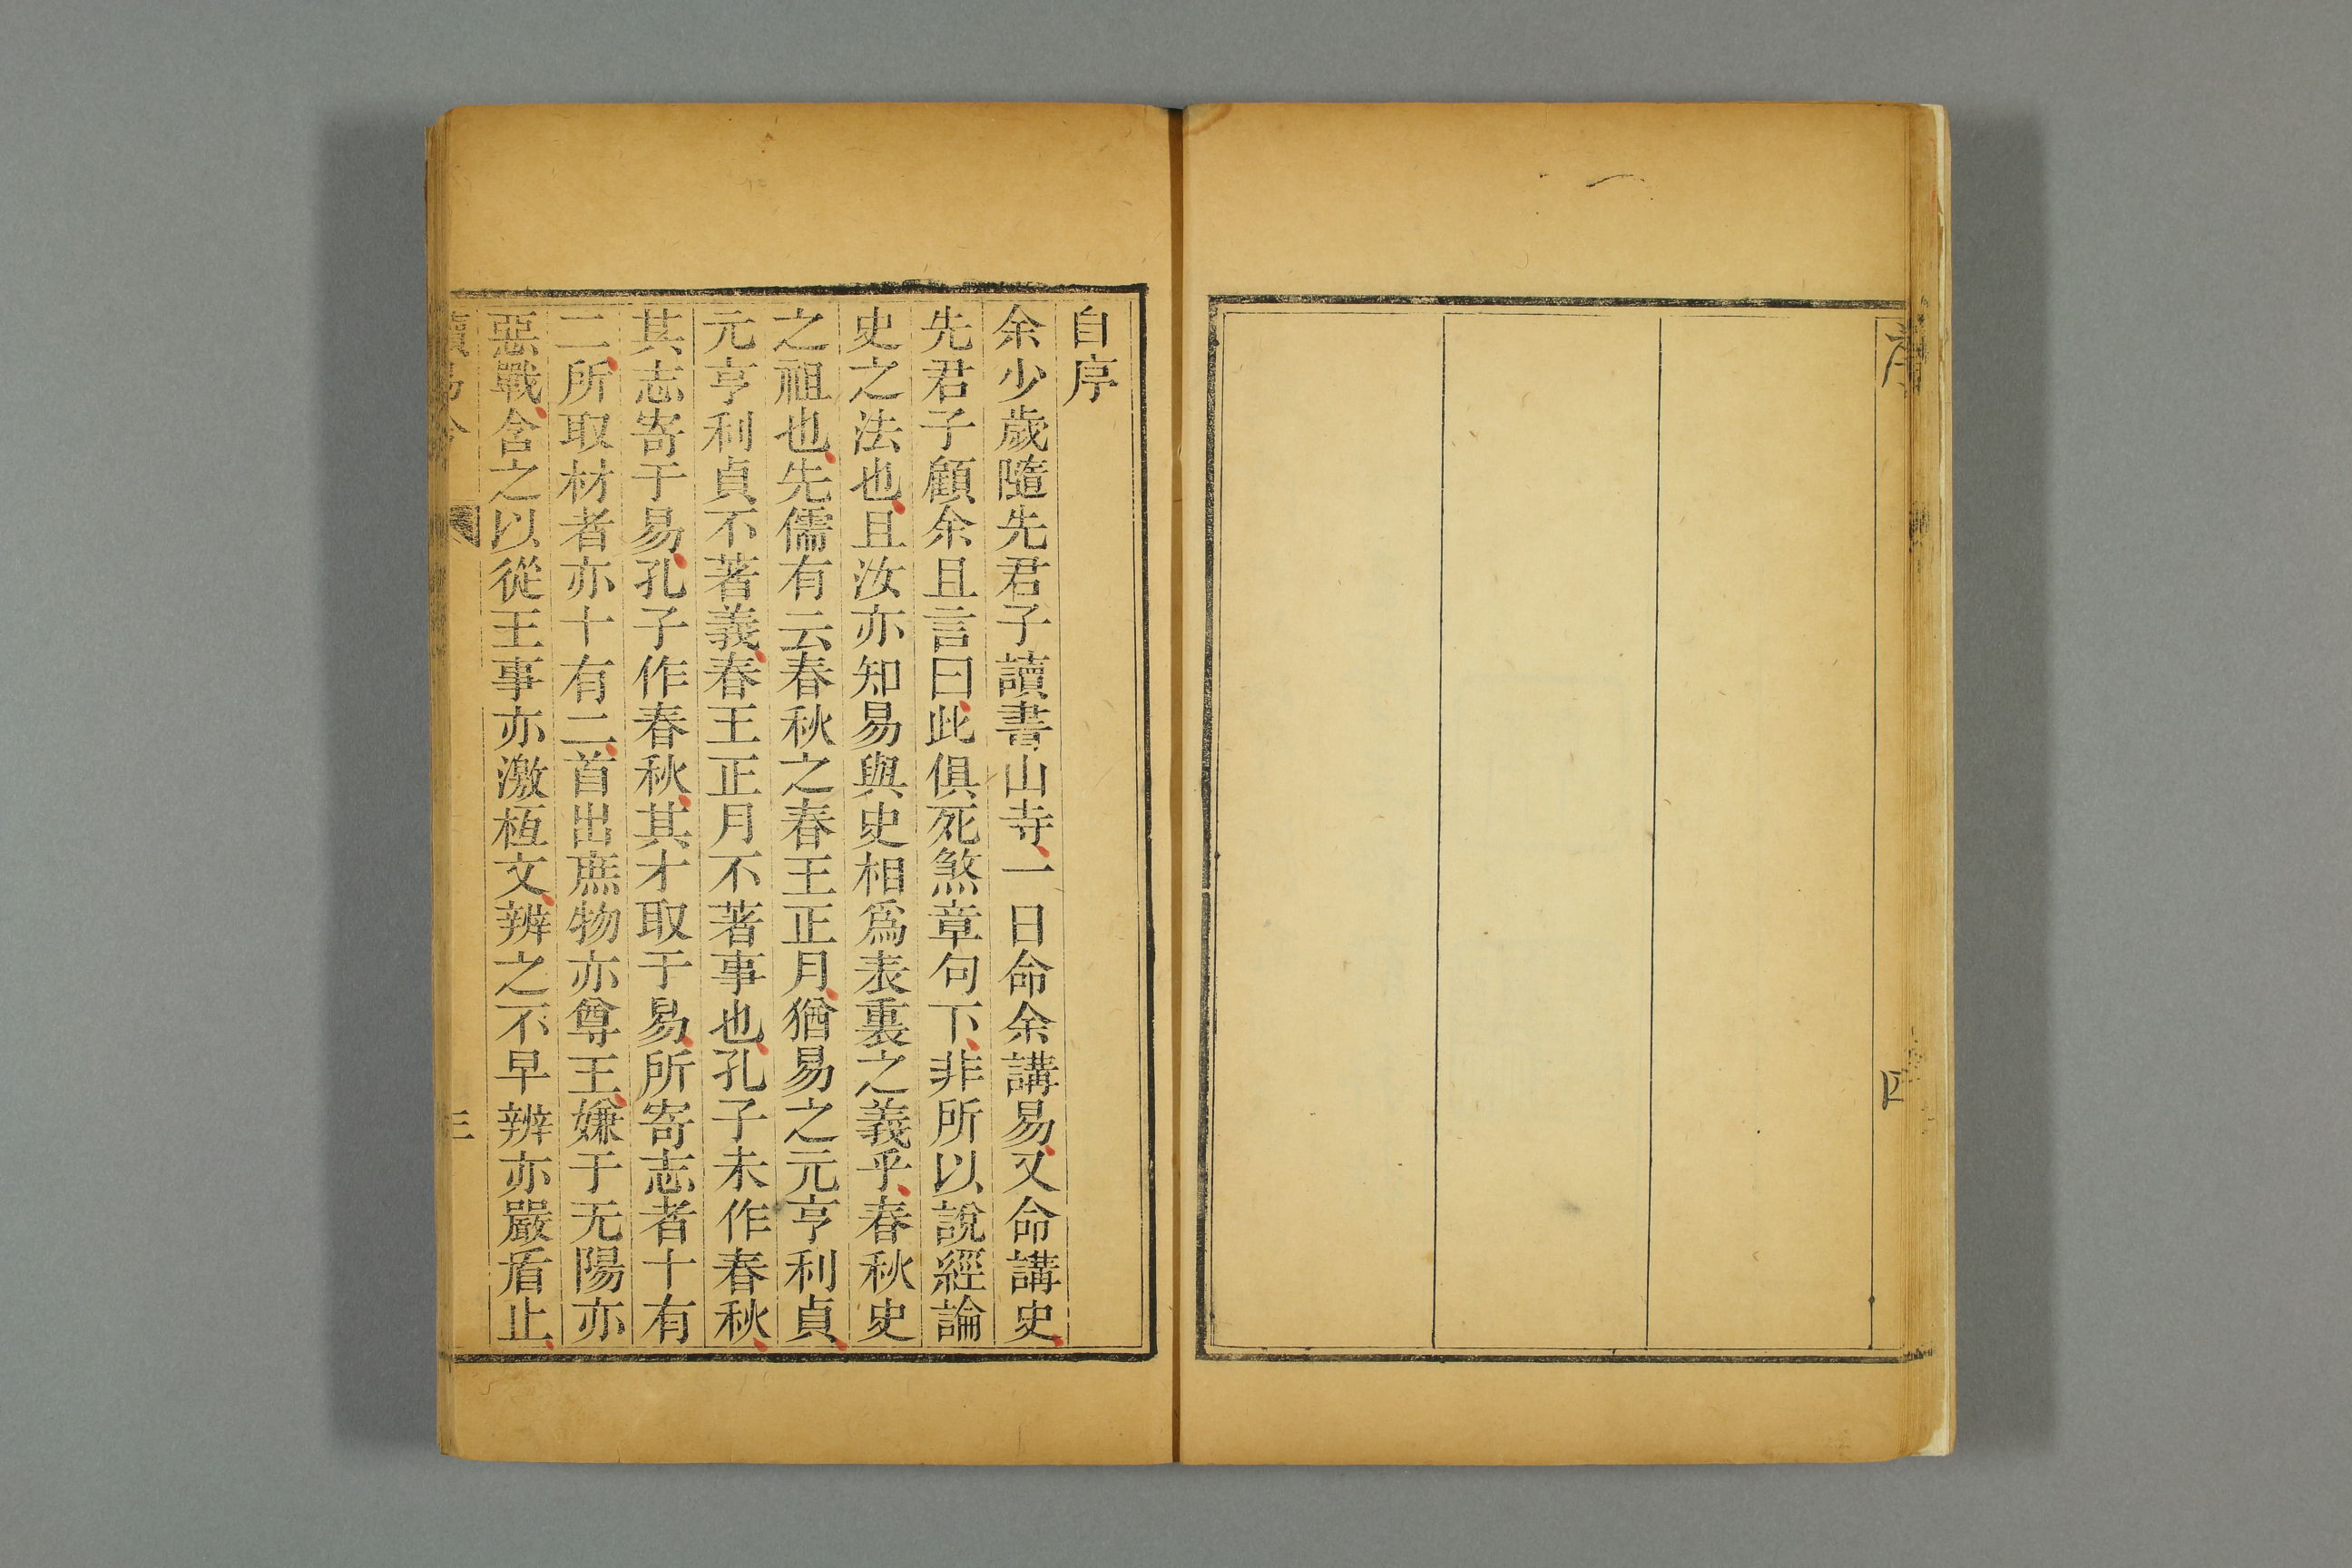 序
四
自序
余少歲隨先君子讀書山寺一日命余講易又命講史
先君子顧余且言曰此俱死煞章句下非所以說經論
史之法也且汝亦知易與史相爲表裏之義乎春秋史
之祖也先儒有云春秋之春王正月猶易之元亨利貞
元亨利貞不著義春王正月不著事也孔子未作春秋
其志寄于易孔子作春秋其才取于易所寄志者十有
二所取材者亦十有二首出庶物亦尊王嫌于无陽亦
惡戰含之以從王事亦激桓文辨之不早辨亦嚴盾止
讀易